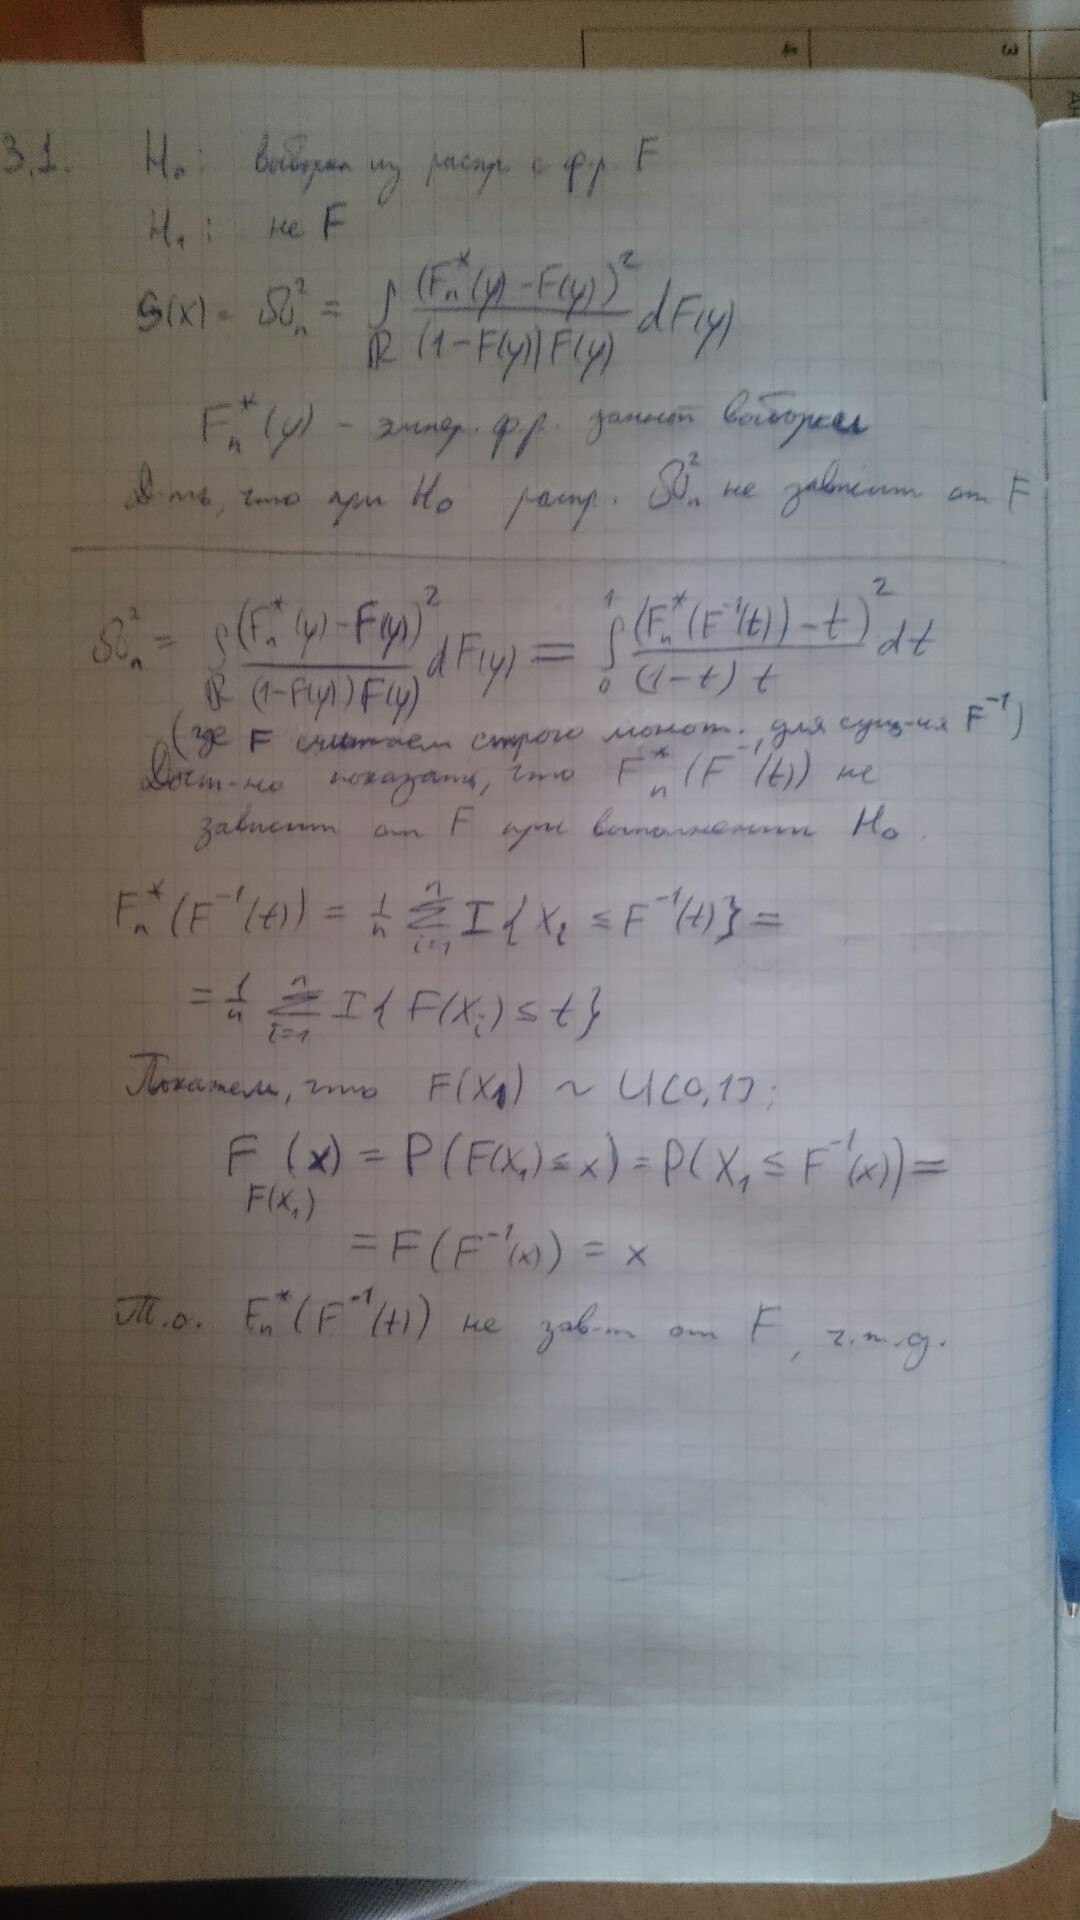 3.1. H₀: выборка из распр. с ф.р. F
H₁: не F
S(X) = ω²ₙ = ∫_ℝ (Fₙ*(y) - F(y))² / ((1-F(y)) F(y)) dF(y)
Fₙ*(y) - эмпер. ф.р. выборки
Д-ть, что при H₀ распр. ω²ₙ не зависит от F
ω²ₙ = ∫_ℝ (Fₙ*(y) - F(y))² / ((1-F(y)) F(y)) dF(y) = ∫₀¹ (Fₙ*(F⁻¹(t)) - t)² / ((1-t) t) dt
(где F считаем строго монот. для сущ-ия F⁻¹)
Дост-но показать, что Fₙ*(F⁻¹(t)) не
зависит от F при выполнении H₀.
Fₙ*(F⁻¹(t)) = 1/n Σᵢ₌₁ⁿ I{Xᵢ ≤ F⁻¹(t)} =
= 1/n Σᵢ₌₁ⁿ I{F(Xᵢ) ≤ t}
Покажем, что F(X₁) ~ U[0,1]:
F_F(X₁) (x) = P(F(X₁) ≤ x) = P(X₁ ≤ F⁻¹(x)) =
= F(F⁻¹(x)) = x
Т.о. Fₙ*(F⁻¹(t)) не зав-т от F, ч.т.д.
3